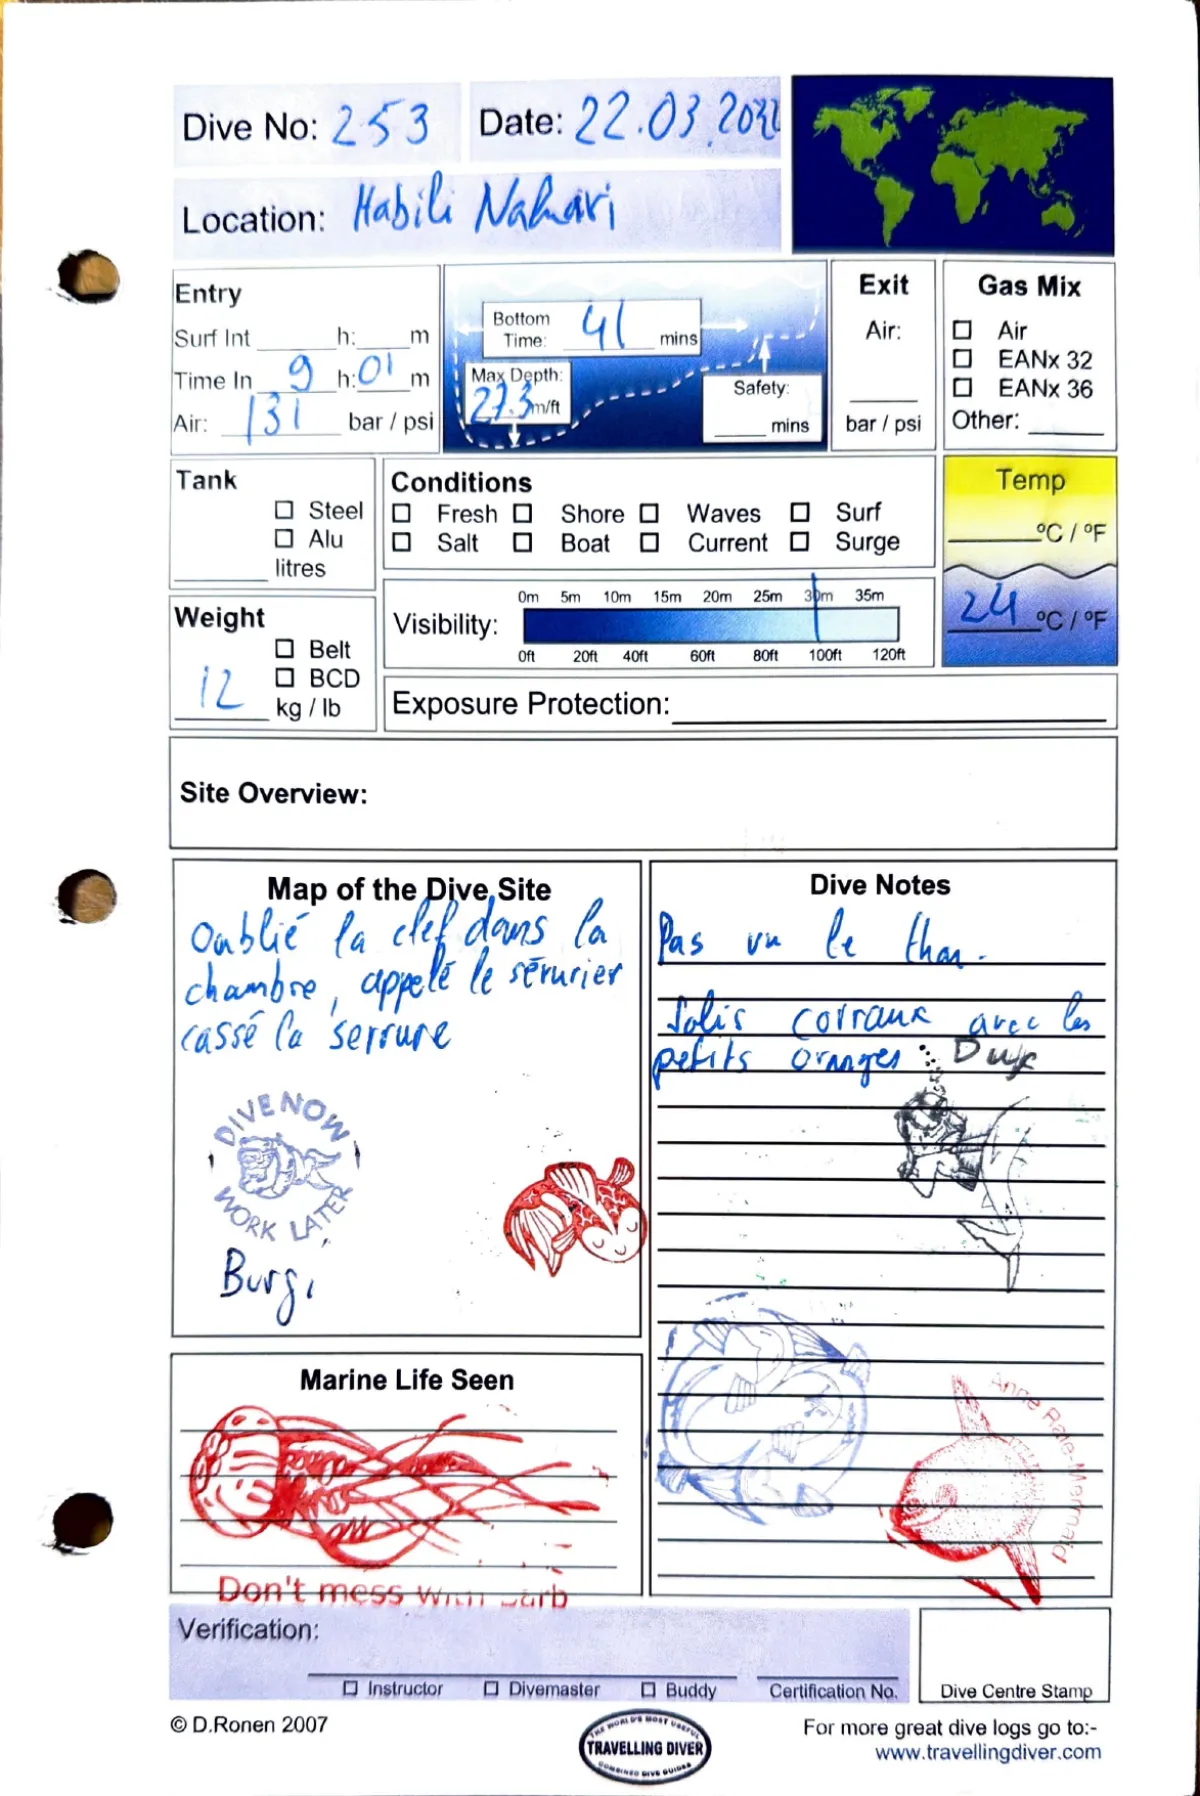 Dive No: 253
Date: 22.03.
Location: Habili Nahari
Entry
Surf Int h: m
Time In 9 h: 01 m
Air: 131 bar / psi
Bottom Time: 41 mins
Max Depth: 27.3 m/ft
Safety: mins
Exit
Air:
bar / psi
Gas Mix
Air
EANx 32
EANx 36
Other:
Tank
Steel
Alu
litres
Conditions
Fresh Shore Waves Surf
Salt Boat Current Surge
Temp
°C / °F
24 °C / °F
Weight
Belt
BCD
12 kg / lb
Visibility:
0m 5m 10m 15m 20m 25m 30m 35m
0ft 20ft 40ft 60ft 80ft 100ft 120ft
Exposure Protection:
Site Overview:
Map of the Dive Site
Oublié la clef dans la
chambre, appelé le sérurier
cassé la serrure
DIVE NOW
WORK LATER
Dive Notes
Pas vu le
Jolis corraux avec les
petits oranges
Marine Life Seen
Don't mess with
Verification:
Instructor Divemaster Buddy Certification No.
Dive Centre Stamp
© D.Ronen 2007
THE WORLD'S MOST USEFUL
TRAVELLING DIVER
COMBINED DIVE GUIDES
For more great dive logs go to:-
www.travellingdiver.com